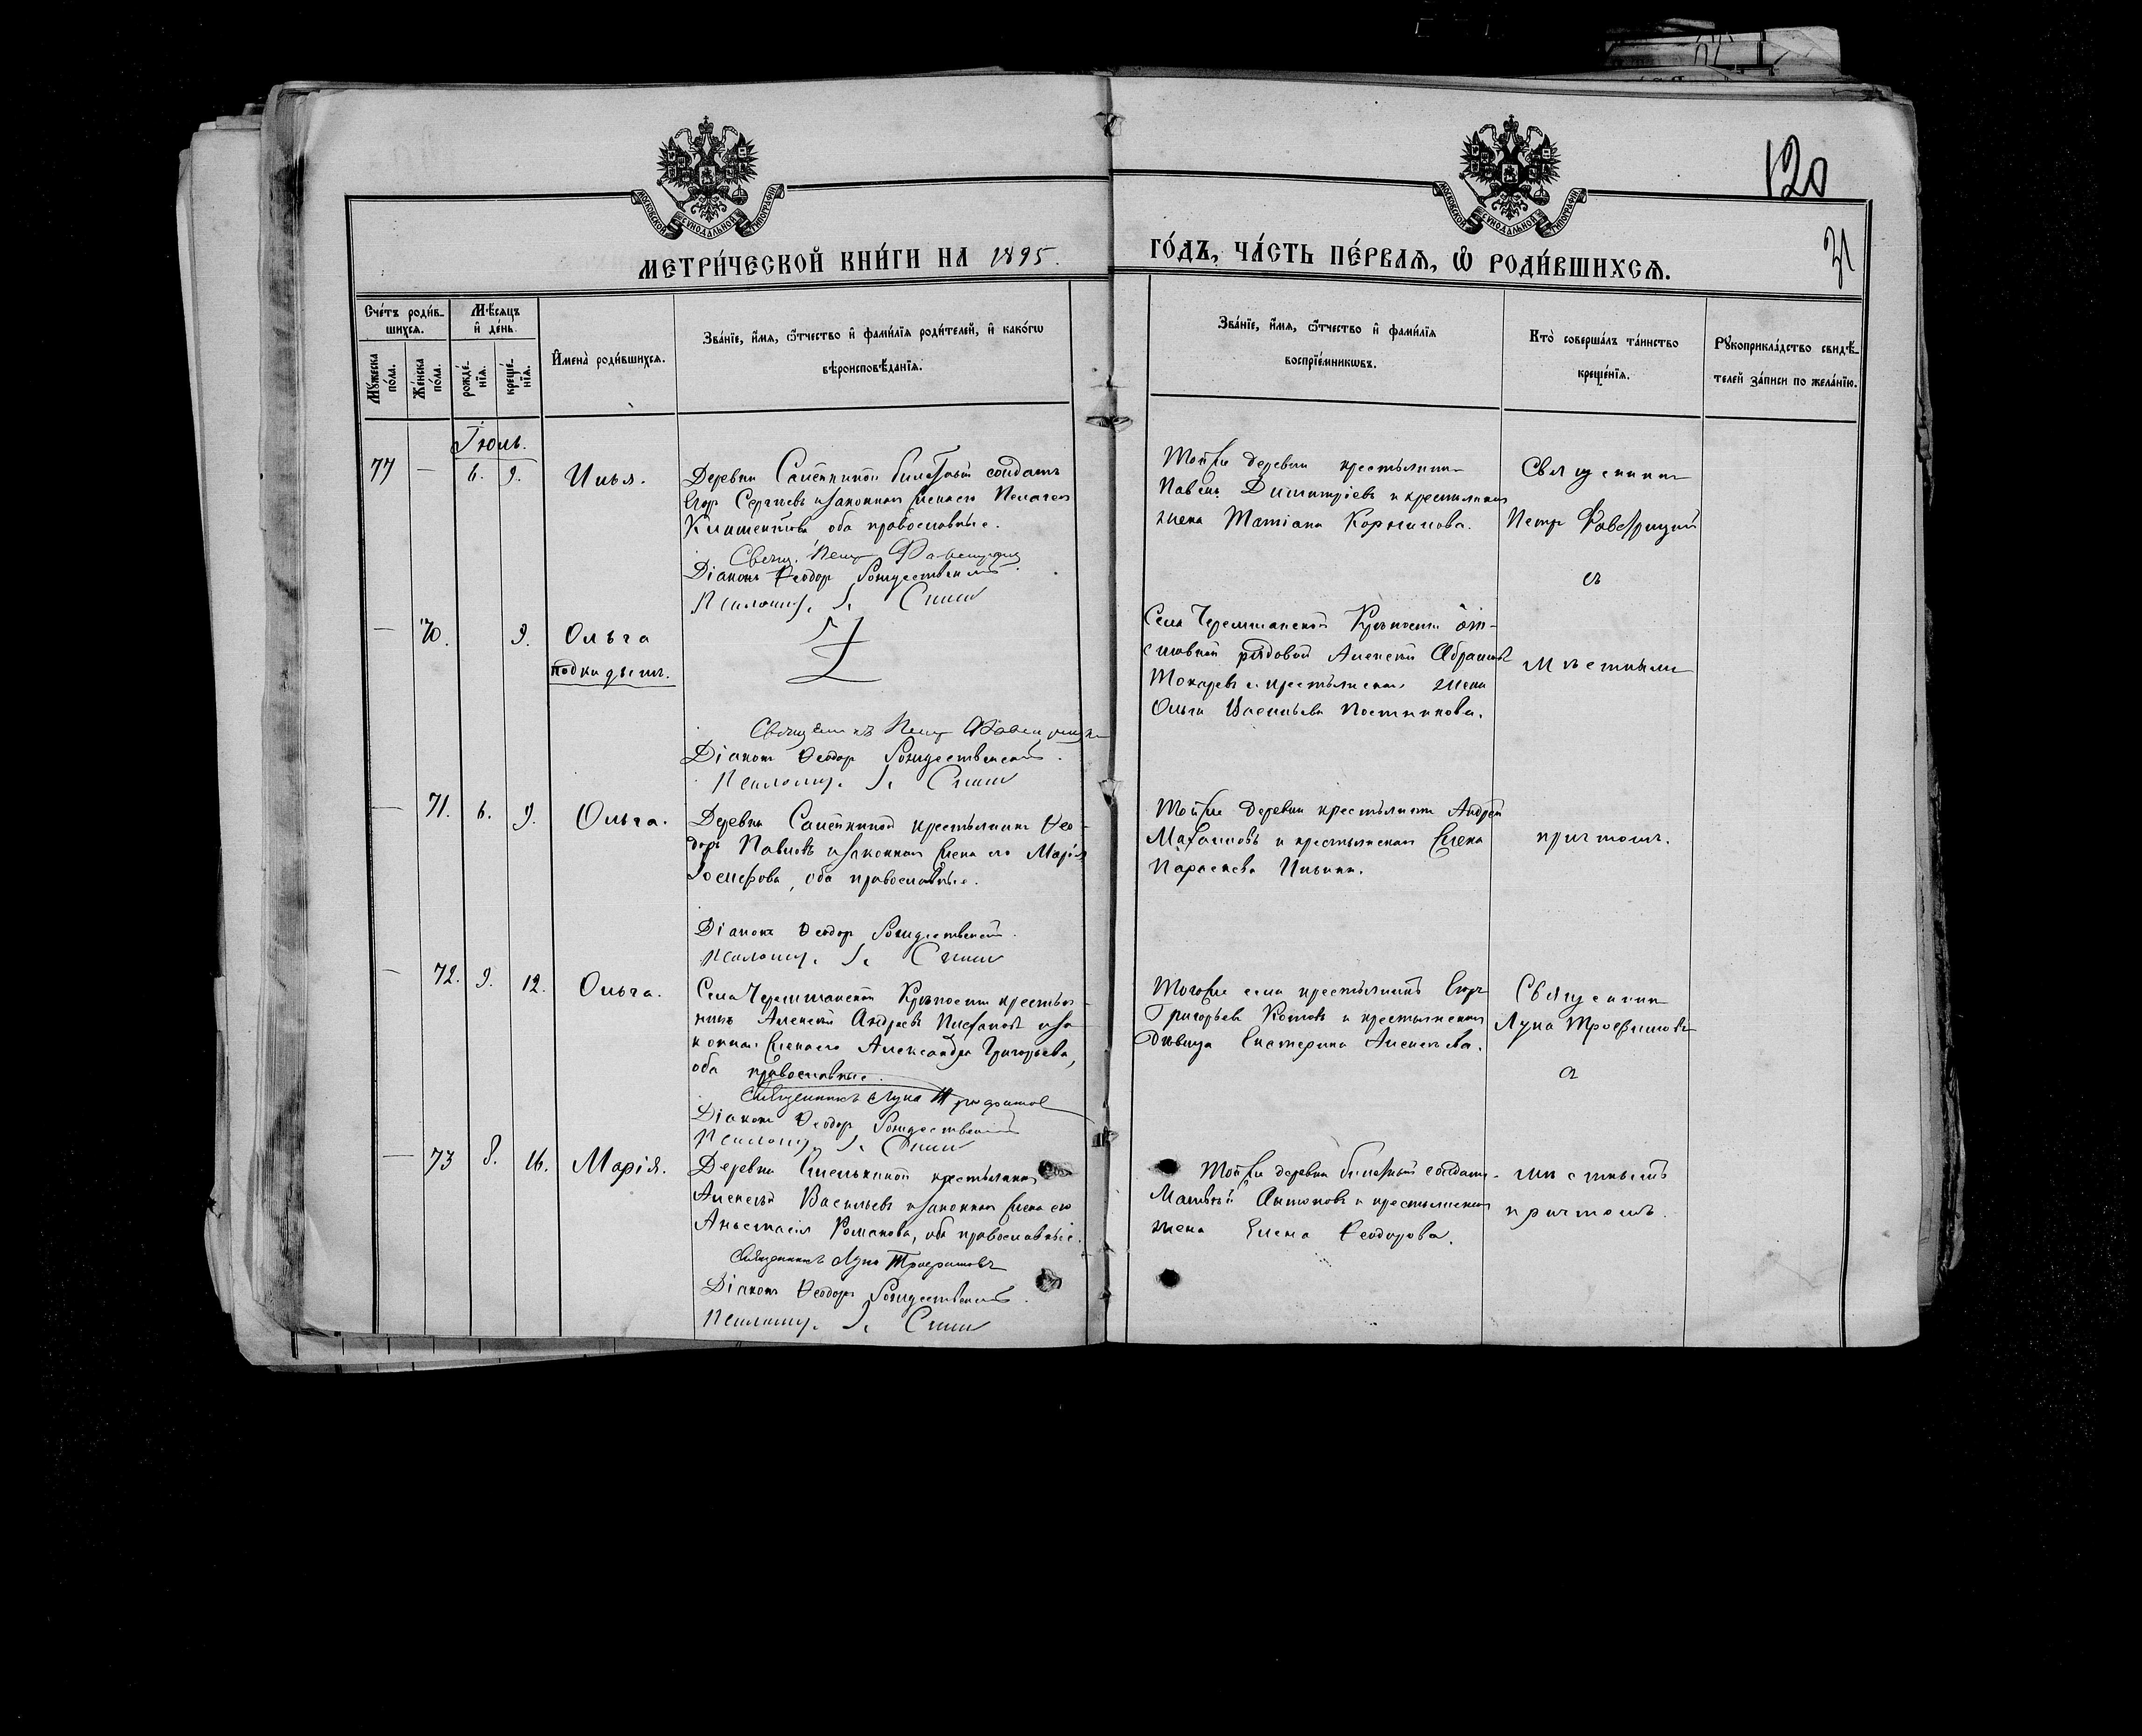 120
31
МОСКОВСКОЙ СѴНОДАЛЬНОЙ ТИПОГРАФІИ
МОСКОВСКОЙ СѴНОДАЛЬНОЙ ТИПОГРАФІИ
МЕТРИ́ЧЕСКОЙ КНИ́ГИ НА 1895.
ГО́ДЪ, ЧА́СТЬ ПЕ́РВАѦ, Ѡ҆ РОДИ́ВШИХСѦ.
Сче́тъ роди́в-
шихсѧ.
Мѣ́сѧцъ
и҆ де́нь.
Мꙋ́жеска
по́ла.
Же́нска
по́ла.
рожде́-
нїѧ.
креще́-
нїѧ.
И҆мена̀ роди́вшихсѧ.
Зва́нїе, и҆́мѧ, ѻ҆́тчество и҆ фами́лїѧ роди́телей, и҆ како́гѡ
вѣроисповѣ́данїѧ.
Зва́нїе, и҆́мѧ, ѻ҆́тчество и҆ фами́лїѧ
воспрїе́мникѡвъ.
Кто̀ соверша́лъ та́инство
креще́нїѧ.
Рꙋкоприкла́дство свидѣ́-
телей за́писи по жела́нїю.
Іюль.
77 — 6. 9. Илья.
Деревни билетный солдатъ
Егоръ Сергѣевъ и законная жена его Пелагея
Климентова оба православные.
Свящ. Петр
Діаконъ Ѳеодоръ Рождественскій
Псаломщ.
Той же деревни крестьянинъ
Павелъ Димитріевъ и крестьянская
жена Татіана Корнилова.
Священникъ
Петръ
съ
— 70. 9. Ольга
подкидышъ.
Священникъ Петр
Діаконъ Ѳеодоръ Рождественскій.
Псаломщ.
Села Черемшанской Крѣпости от-
ставной рядовой Алексѣй Абрамовъ
Токаревъ и крестьянская жена
Ольга Васильева Постникова.
мѣстнымъ
— 71. 6. 9. Ольга.
Деревни крестьянинъ Ѳео-
доръ Павловъ и законная жена его Марія
Іосифова, оба православные.
Діаконъ Ѳеодоръ Рождественскій.
Псаломщ.
Той же деревни крестьянинъ Андрей
и крестьянская жена
Параскева Ильина.
причтомъ.
— 72. 9. 12. Ольга.
Села Черемшанской Крѣпости крестья-
нинъ Алексѣй Андреевъ и за-
конная жена его Александра Григорьева,
оба православные.
Священникъ Лука Трофимовъ
Діаконъ Ѳеодоръ Рождественскій
Псаломщ.
Того же села крестьянинъ Егоръ
Григорьевъ Котовъ и крестьянская
дѣвица Екатерина Алексѣева.
Священникъ
Лука Трофимовъ
съ
— 73 8. 16. Марія.
Деревни крестьянинъ
Алексѣй Васильевъ и законная жена его
Анастасія Романова, оба православные.
Священникъ Лука Трофимовъ
Діаконъ Ѳеодоръ Рождественскій.
Псаломщ.
Той же деревни билетный солдатъ
Матвѣй Антоновъ и крестьянская
жена Елена Ѳеодорова.
мѣстнымъ
причтомъ.